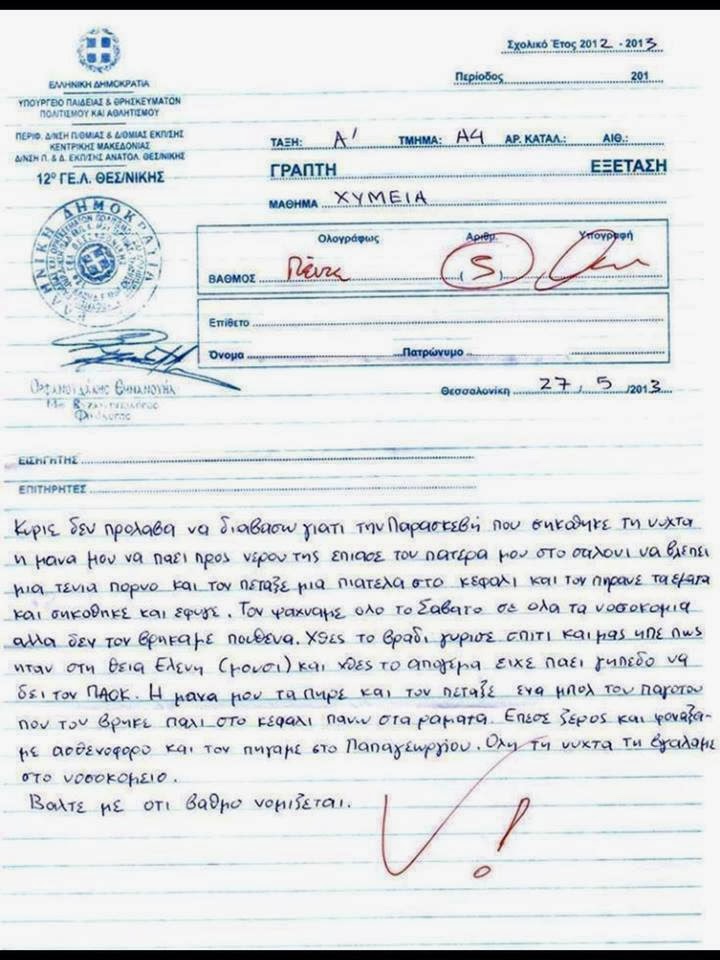 Σχολικό Έτος 2012 - 2013
Περίοδος 201
ΕΛΛΗΝΙΚΗ ΔΗΜΟΚΡΑΤΙΑ
ΥΠΟΥΡΓΕΙΟ ΠΑΙΔΕΙΑΣ & ΘΡΗΣΚΕΥΜΑΤΩΝ
ΠΟΛΙΤΙΣΜΟΥ ΚΑΙ ΑΘΛΗΤΙΣΜΟΥ
ΠΕΡΙΦ. Δ/ΝΣΗ Π/ΘΜΙΑΣ & Δ/ΘΜΙΑΣ ΕΚΠ/ΣΗΣ
ΚΕΝΤΡΙΚΗΣ ΜΑΚΕΔΟΝΙΑΣ
Δ/ΝΣΗ Π. & Δ. ΕΚΠ/ΣΗΣ ΑΝΑΤΟΛ. ΘΕΣ/ΝΙΚΗΣ
12º ΓΕ.Λ. ΘΕΣ/ΝΙΚΗΣ
ΤΑΞΗ: Α' ΤΜΗΜΑ: Α4 ΑΡ. ΚΑΤΑΛ.: ΑΙΘ.:
ΓΡΑΠΤΗ ΕΞΕΤΑΣΗ
ΜΑΘΗΜΑ ΧΥΜΕΙΑ
Ολογράφως Αριθμ. Υπογραφή
ΒΑΘΜΟΣ Πέντε (5)
Επίθετο
Όνομα Πατρώνυμο
Θεσσαλονίκη 27, 5 /2013
ΕΛΛΗΝΙΚΗ ΔΗΜΟΚΡΑΤΙΑ
ΕΙΣΗΓΗΤΗΣ
ΕΠΙΤΗΡΗΤΕΣ
Κυριε δεν προλαβα να διαβασω γιατι την Παρασκεβή που σηκοθηκε τη νυχτα
η μανα μου να παει προς νερου της επιασε τον πατερα μου στο σαλονι να βλεπει
μια τενια πορνο και τον πεταξε μια πιατελα στο κεφαλι και τον πηρανε τα εματα
και σηκοθηκε και εφυγε. Τον ψαχναμε ολο το Σαβατο σε ολα τα νοσοκομια
αλλα δεν τον βρηκαμε πουθενα. Χθες το βραδι γυρισε σπιτι και μας ηπε πως
ηταν στη θεια Ελενη (μουσι) και χθες το απογεμα ειχε παει γηπεδο να
δει τον ΠΑΟΚ. Η μανα μου τα πηρε και τον πεταξε ενα μπολ του παγοτου
που τον βρηκε παλι στο κεφαλι πανω στα ραματα. Επεσε ξερος και φοναξα-
με ασθενοφορο και τον πηγαμε στο Παπαγεωργιου. Ολη τη νυχτα τη βγαλαμε
στο νοσοκομειο.
Βαλτε με οτι βαθμο νομιζεται.
!